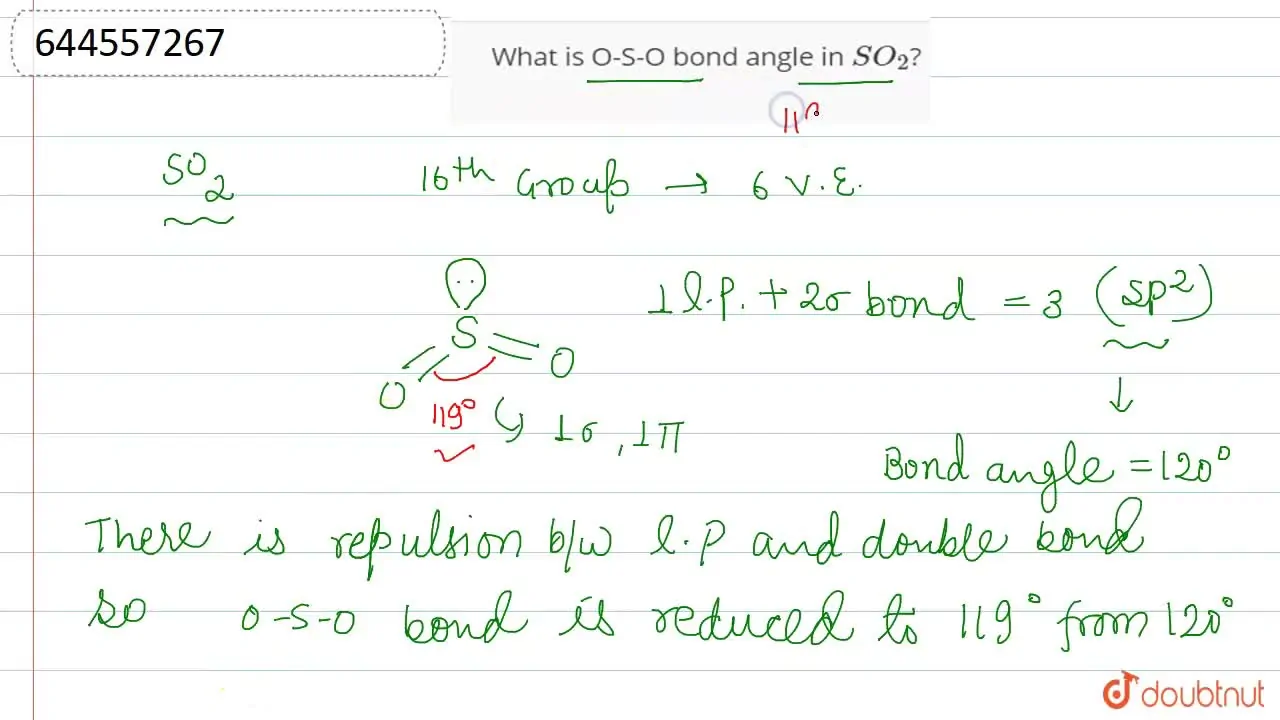 644557267
What is O-S-O bond angle in SO₂?
11
SO₂
16th Group → 6 V.E.
1 l.p. + 2σ bond = 3 (sp²)
S
O O
119° 1σ, 1π
Bond angle = 120°
There is repulsion b/w l.p and double bond
so O-S-O bond is reduced to 119° from 120°
doubtnut